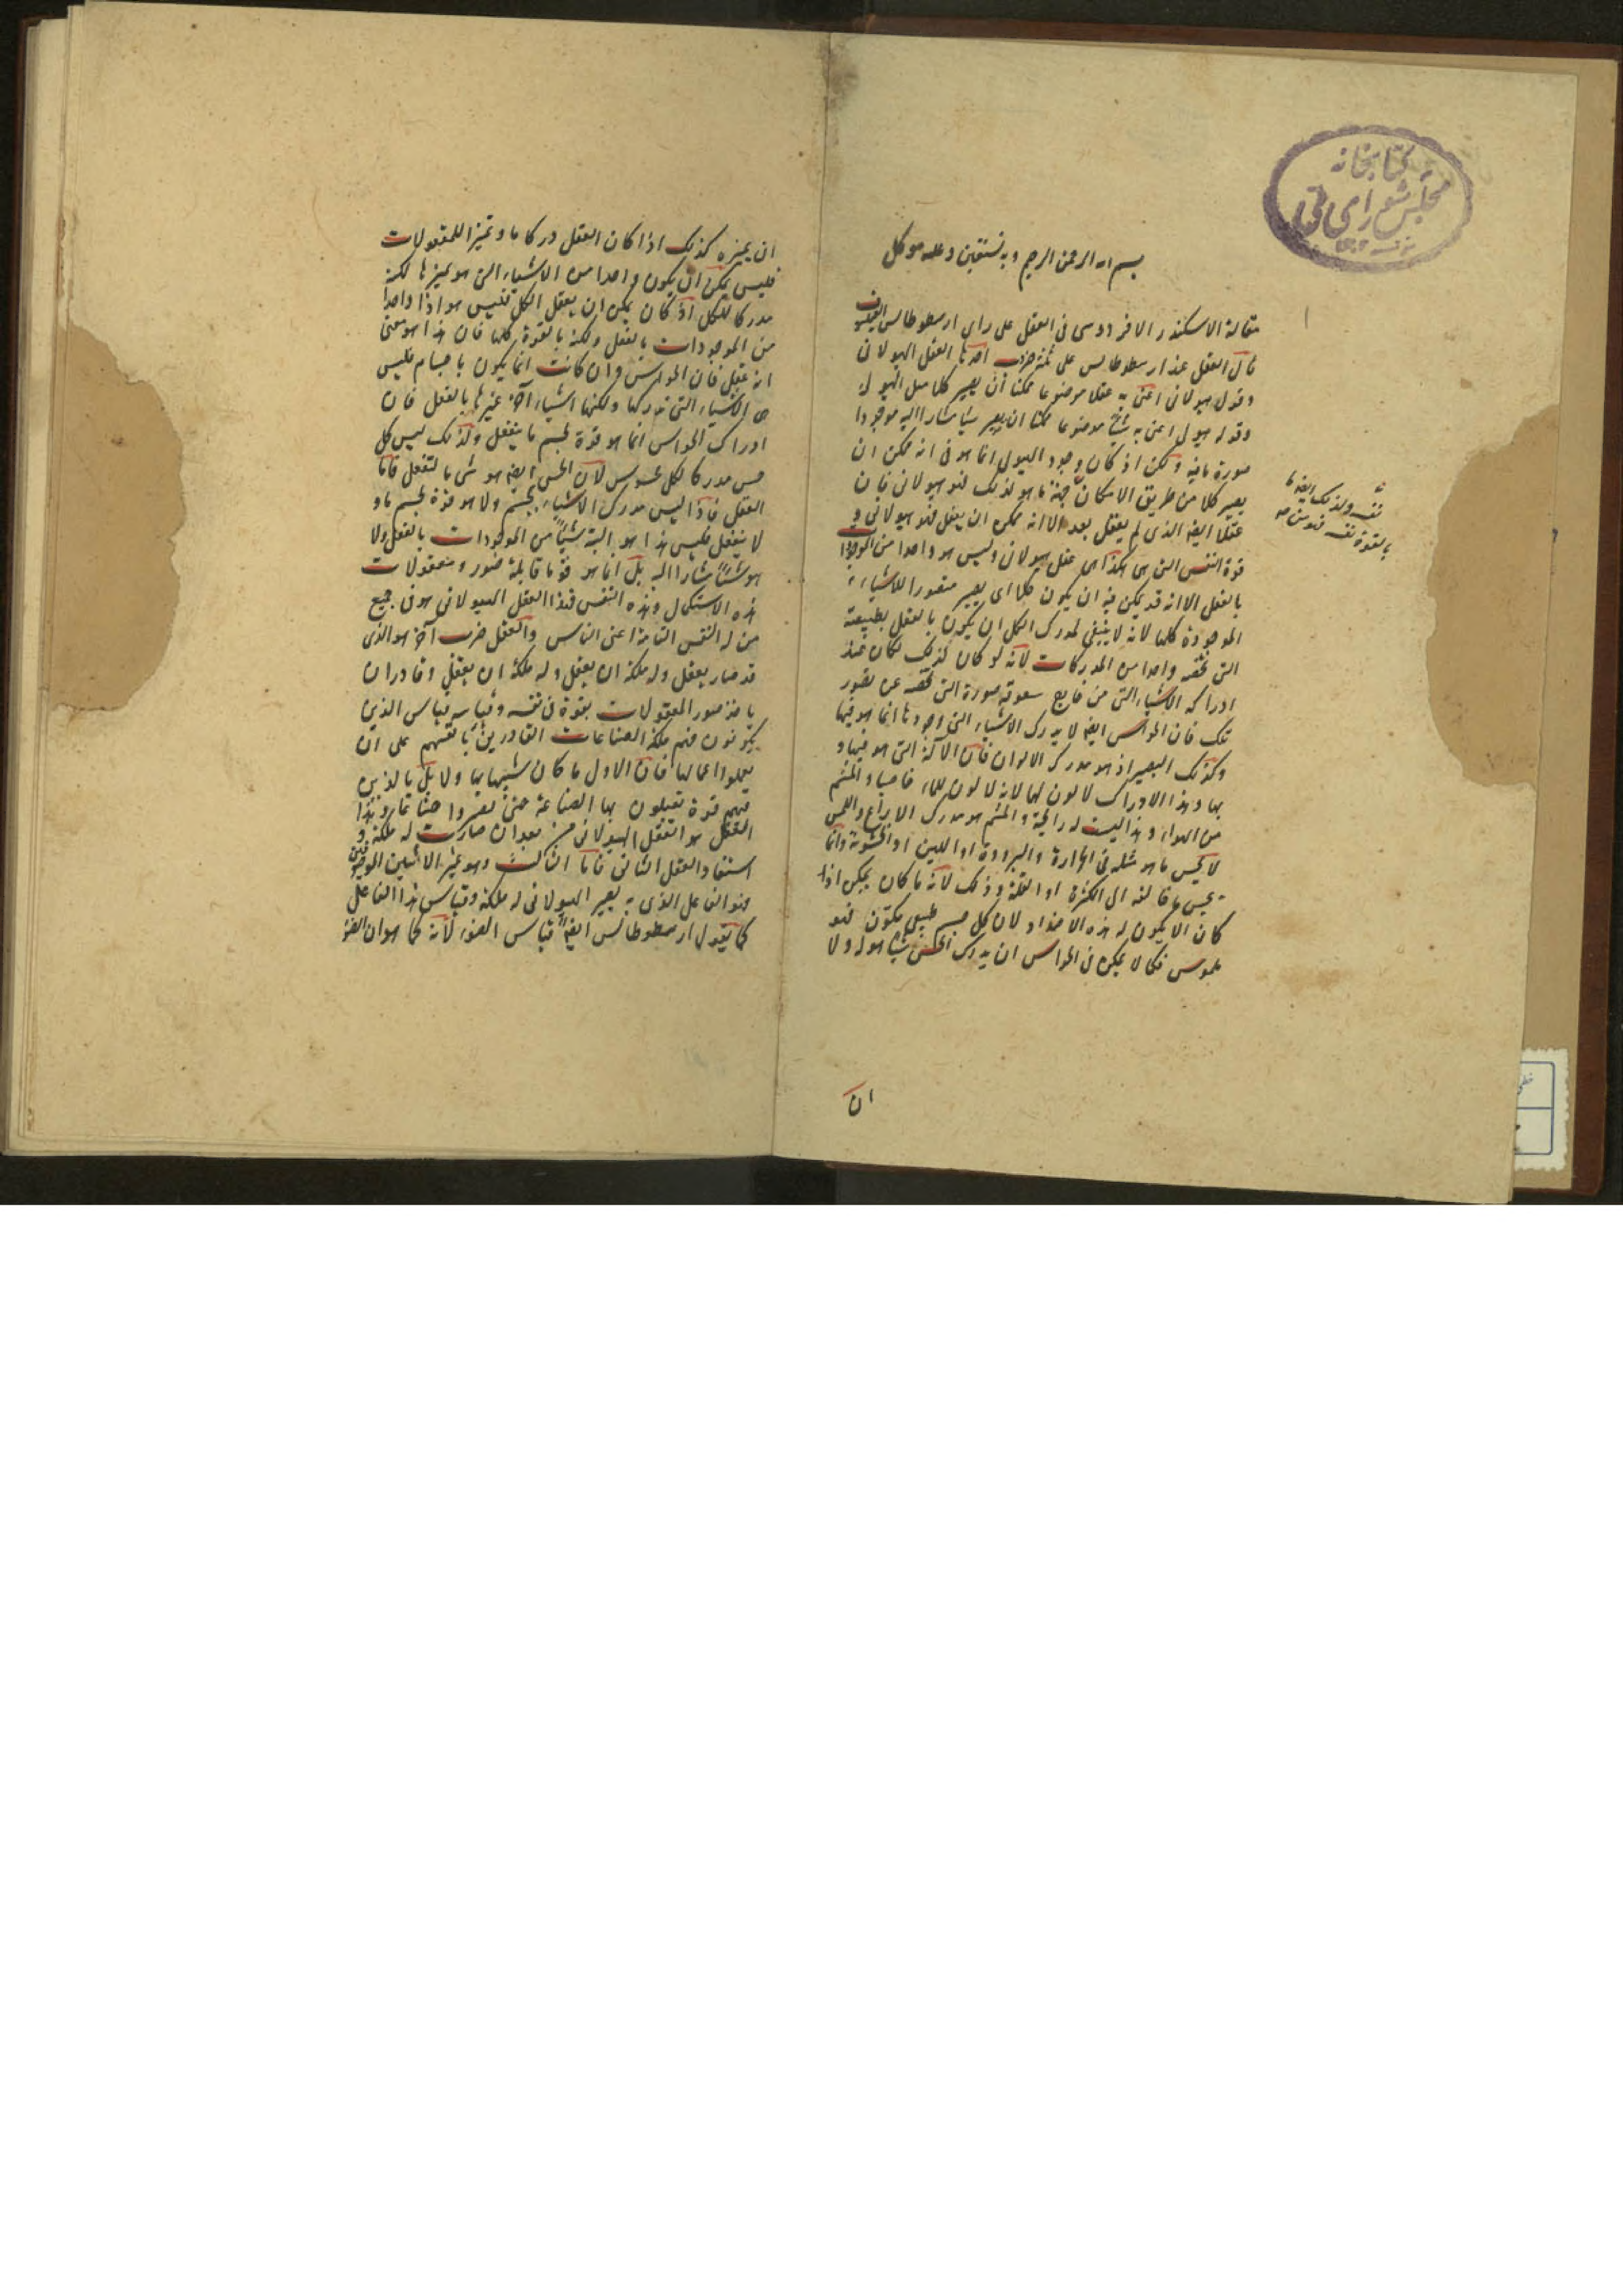 كتابخانه
مجلس شورای ملی
بسم الله الرحمن الرحيم وبه نستعين وعليه توكل
مقالة الاسكندر الافرودوسى فى العقل على راى ارسطوطالس الفيلسوف
قال العقل عند ارسطوطالس على ثلثة ضرب احدها العقل الهيولانى
وقولى هيولانى اعنى به عقلا موضوعا ممكنا ان يصير كلا مثل الهيولى
وقوله هيولى اعنى به شيئا موضوعا ممكنا ان يصير شيا مشارا اليه موجودا
صورة ما فيه ولكن اذ كان وجود الهيولى انما هو فى انه ممكن ان
يصير كلا من طريق الامكان نفسه ولذلك ايضا ما
بالقوة نفسه فهو من جهة ما هو لذلك فهو هيولانى فان
عقلا ايضا الذى لم يعقل بعد الا انه ممكن ان يعقل فهو هيولانى و
قوة النفس التى هى هكذا هى عقل هيولانى وليس هو واحدا من الموجودات
بالفعل الا انه قد يمكن فيه ان يكون كلها اى يصير متصورا للاشياء
الموجودة كلها لانه لا ينبغى لمدرك الكل ان يكون بالفعل بطبيعته
التى تخصه واحدا من المدركات لانه لو كان كذلك لكان عند
ادراكه الاشياء التى من خارج ستعوقه صورة التى تخصه عن تصور
تلك فان الحواس ايضا لا يدرك الاشياء التى وجودها انما هو فيها
وكذلك البصر اذ هو مدرك الالوان فان الآلة التى هو فيها و
بها وهذا الادراك لا لون لها لانه لا لون للماء خاصيا والشم
من الهواء وهذا ليست له رائحة والشم هو مدرك الاراييح واللمس
لا يحس ما هو مثله فى الحرارة والبرودة او اللين او الخشونة وانما
يحس ما خالفه الى الكثرة او القلة وذلك لانه ما كان يمكن اذا
كان الا يكون له هذه الاضداد لان كل جسم طبيعى متكون فهو
ملموس فكما لا يمكن فى الحواس ان يدرك الحس شيا هو له ولا
ان
ان يميزه كذلك اذا كان العقل دركا ما وتميزا للمعقولات
فليس يمكن ان يكون واحدا من الاشياء التى هو يميزها لكنه
مدركا للكل اذ كان يمكن ان يعقل الكل فليس هو اذا واحدا
من الموجودات بالفعل ولكنه بالقوة كلها فان هذا هو معنى
انه عقل فان الحواس وان كانت انما يكون باجسام فليس
هى الاشياء التى تدركها ولكنها اشياء آخر غيرها بالفعل فان
ادراك الحواس انما هو قوة لجسم ما ينفعل ولذلك ليس كل
حس مدركا لكل محسوس لان الحس ايضا هو شى ما لتفعل فاما
العقل فاذ ليس مدرك الاشياء بجسم ولا هو قوة لجسم ما و
لا ينفعل فليس هذا هو البتة شيئا من الموجودات بالفعل ولا
هو شيئا مشارا اليه بل انما هو قوة ما قابلة صور ومعقولات
هذه الاستكمال وهذه النفس فهذا العقل الهيولانى هو فى جميع
من له النفس التامة اعنى الناس والعقل ضرب آخر هو الذى
قد صار يعقل وله ملكة ان يعقل وله ملكة ان يعقل وقادر ان
ياخذ صور المعقولات بقوة فى نفسه وقياسه قياس الذين
يكونون فيهم ملكة الصناعات القادرين بانفسهم على ان
يعملوا اعمالها فان الاول ما كان شبيها بها ولا بل بالذين
فيهم قوة يقبلون بها الصناعة حتى يصيروا صناعا وهذا
العقل هو العقل الهيولانى من بعد ان صارت له ملكة و
استفاد العقل الثانى فاما الثالث وهو غير الاثنين الموصوفين
فهو الفاعل الذى به يصير الهيولانى له ملكة وقياس هذا الفاعل
كما يقول ارسطوطالس ايضا قياس الضوء لانه كما هو ان الضوء